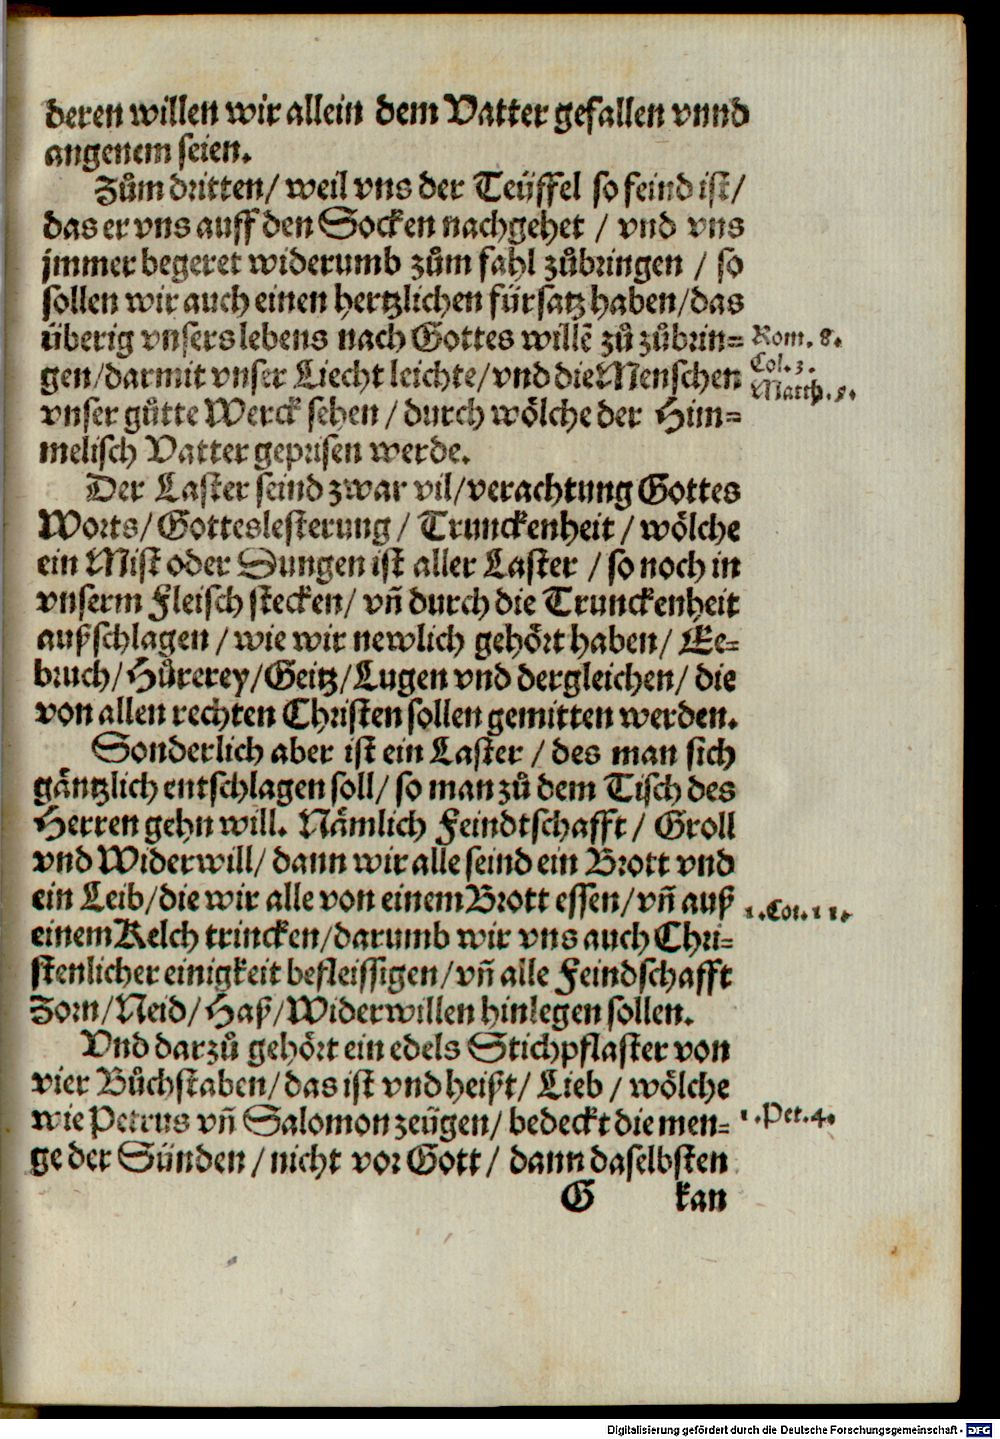 deren willen wir allein dem Vatter gefallen vnnd
angenem seien.
Zům dritten/ weil vns der Teüffel so feind ist/
das er vns auff den Socken nachgehet / vnd vns
jmmer begeret widerumb zům fahl zůbringen / so
sollen wir auch einen hertzlichen fürsatz haben/das
überig vnsers lebens nach Gottes willē zů zůbrin=
Rom. 8.
gen/darmit vnser Liecht leichte/vnd die Menschen
Col. 3.
Matth. 5.
vnser gůtte Werck sehen / durch wölche der Him=
melisch Vatter geprisen werde.
Der Laster seind zwar vil/verachtung Gottes
Worts/ Gotteslesterung / Trunckenheit / wölche
ein Mist oder Dungen ist aller Laster / so noch in
vnserm Fleisch stecken/ vñ durch die Trunckenheit
außschlagen / wie wir newlich gehört haben/ Ee=
bruch/ Hůrerey/Geitz/Lugen vnd dergleichen/ die
von allen rechten Christen sollen gemitten werden.
Sonderlich aber ist ein Laster / des man sich
gäntzlich entschlagen soll/ so man zů dem Tisch des
Herren gehn will. Nämlich Feindtschafft/ Groll
vnd Widerwill/ dann wir alle seind ein Brott vnd
ein Leib/die wir alle von einem Brott essen/vñ auß
1. Cor. 11.
einem Kelch trincken/darumb wir vns auch Chri=
stenlicher einigkeit befleissigen/vñ alle Feindschafft
Zorn/Neid/ Haß/Widerwillen hinlegen sollen.
Vnd darzů gehört ein edels Stichpflaster von
vier Bůchstaben/das ist vnd heißt/ Lieb / wölche
wie Petrus vñ Salomon zeügen/ bedeckt die men=
1. Pet. 4.
ge der Sünden /nicht vor Gott/ dann daselbsten
G kan
Digitalisierung gefördert durch die Deutsche Forschungsgemeinschaft - DFG